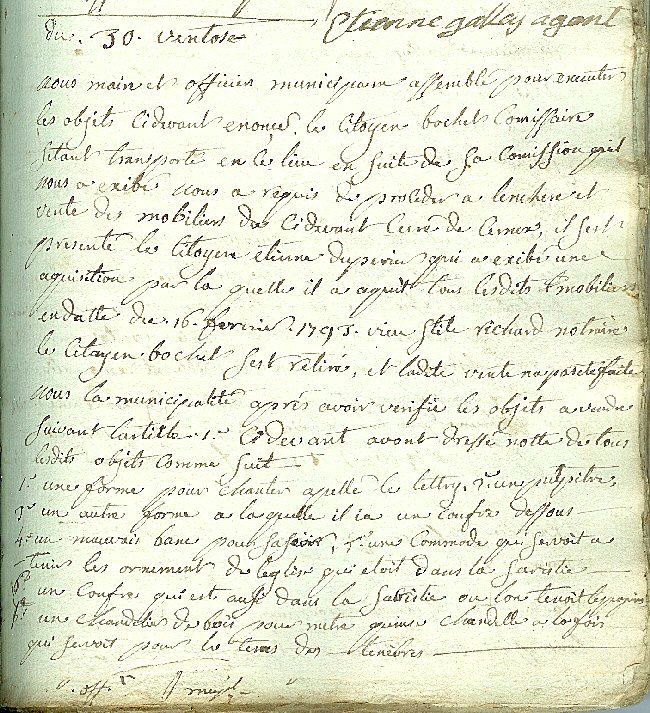 Etienne gallay agent
du 30 ventose
nous maire et officiers municipaux assemblé pour executer
les objets cidevant enoncé. le Citoyen bochet Comissaire
setant transporté en ce lieu en suite de sa Comission quil
nous a exibé nous a requis de proceder a lenchere et
vente des mobiliers du cidevant Curé de Cernex, il sest
presenté le Citoyen etienne duperier qui a exibé une
aquisition par la quelle il a aquit tous lesdits mobiliers
en datte du 16. fevrier 1793. vieu stile richard notaire
le Citoyen bochet sest retiré, et ladite vente na pas eté faite
nous la municipalité aprés avoir verifié les objets a vendre
suivant larticle 1.r cidevant avont dressé notte de tous
lesdits objets comme suit
1.° une forme pour chanter apellé le lettry, 2.° un pulpitre,
3.° un autre forme a la quelle il ia un coufre dessous
4.° un mauvais banc pour sasoir, 5.° une Commode qui servoit a
tenir les ornement de leglise qui etoit dans la sacristie
6.° un Coufre qui est aussi dans la sacristie ou lon tenoit les papiers
7.° un chandelier de bois pour mettre quinse chandelle a la fois
qui servoit pour le tems des tenebres
off.r